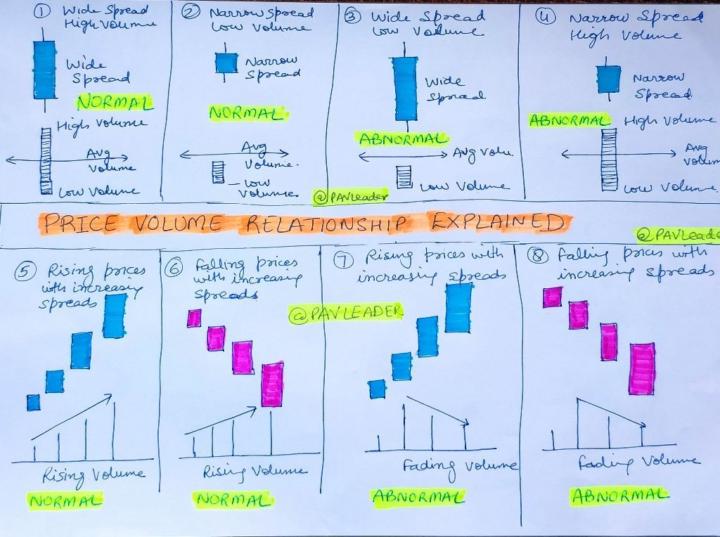 ① Wide Spread
High Volume
Wide
Spread
NORMAL
High Volume
Avg
Volume
Low Volume
② Narrow Spread
Low Volume
Narrow
Spread
NORMAL
Avg
Volume.
Low
Volumes
③ Wide Spread
Low Volume
Wide
Spread
ABNORMAL
Avg Volu
Low Volume
@PAVLeader
④ Narrow Spread
High Volume
Narrow
Spread
ABNORMAL High Volume
Avg
Volum
Low Volume
PRICE VOLUME RELATIONSHIP EXPLAINED
@PAVLeade
⑤ Rising prices
with increasing
spreads
Rising Volume
NORMAL
⑥ Falling prices
with increasing
Spreads
Rising Volume
NORMAL
@PAVLEADER
⑦ Rising prices with
increasing spreads
Fading Volume
ABNORMAL
⑧ Falling prices with
increasing spreads
Fading Volume
ABNORMAL